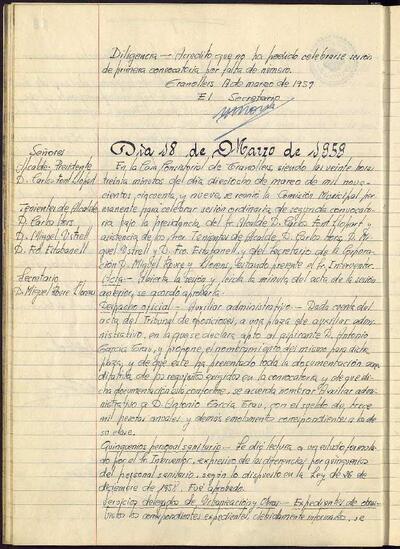 Diligencia — Acredito que no ha podido celebrarse sesión
de primera convocatoria por falta de número.
Granollers 17 de marzo de 1959
El Secretario
Día 18 de Marzo de 1959
Señores
Alcalde-Presidente
D. Carlos Font Llopart
Tenientes de Alcalde
D. Carlos
D. Miguel
D. Fco. Estabanell
Secretario
D. Miguel Llorens
En la Casa Consistorial de Granollers, siendo las veinte horas
treinta minutos del día dieciocho de marzo de mil nove-
cientos cincuenta y nueve, se reunió la Comisión Municipal per-
manente para celebrar sesión ordinaria de segunda convocato-
ria bajo la presidencia del Sr. Alcalde D. Carlos Font Llopart y
asistencia de los Sres. Tenientes de Alcalde, D. Carlos D. Mi-
guel y D. Fco. Estabanell, y del Secretario de la Corpora-
ción D. Miguel y Llorens, estando presente el Sr. Interventor.
Acta — Abierta la sesión y leída la minuta del acta de la sesión
anterior, se acordó aprobarla.
Despacho oficial — Auxiliar administrativo — Dada cuenta del
acta del Tribunal de oposiciones, a una plaza de auxiliar admi-
nistrativo, en la que se declara apto al aspirante D. Antonio
García Grau, y propone el nombramiento del mismo para dicha
plaza, y de que éste ha presentado toda la documentación acre-
ditativa de los requisitos exigidos en la convocatoria, y de que di-
cha documentación es correcta, se acuerda nombrar Auxiliar admi-
nistrativo a D. Antonio García Grau, con el sueldo de trece
mil pesetas anuales y demás emolumentos correspondientes a los de
su clase.
Quinquenios personal sanitario — Se dio lectura a un estudio formula-
do por el Sr. Interventor, expresivo de las diferencias por quinquenios
del personal sanitario, según lo dispuesto en la Ley de 26 de
diciembre de 1958. Fue aprobado.
Servicios delegados de Urbanización y Obras — Expedientes de obras —
los correspondientes expedientes, debidamente informados, se